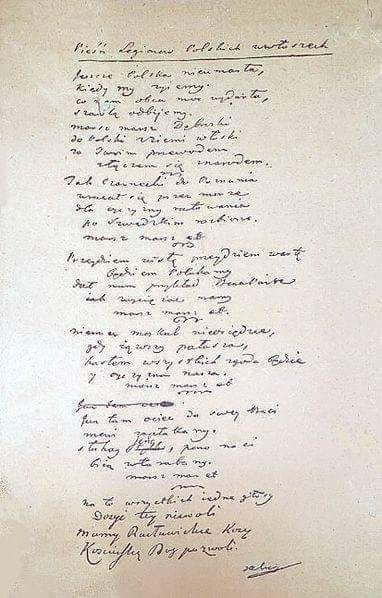 Pieśń Legionow Polskich we włoszech
Jeszcze Polska nieumarła,
kiedy my żyiemy.
co nam obca moc wydarła,
szablą odbijemy.
marsz marsz Dąbrski
do Polski z ziemi włoski
za Twoim przewodem
złączem się znarodem.
Jak Czarnecki do Poznania
wracał się przez morze
dla oyczyzny ratowania
po Szwedzkim rozbiorze.
marsz marsz et
Przeydziem wisłę przeydziem wartę
Będziem Polakamy
dał nam przykład BonaParte
jak zwyciężać mamy
marsz marsz et.
niemiec moskal nieosiędzie,
gdy iąwszy pałasza,
hasłem wszystkich zgoda Będzie
y oyczyzna nasza.
marsz marsz et
Już tam
Już tam ociec do swey Basi
mowi zapłakany.
słuchay ieno, pono nasi
biią w tarabany.
marsz marsz et
na to wszystkich iedne głosy
Dosyć tey niewoli
mamy Racławickie Kosy
Kosciuszkę Bog pozwoli.